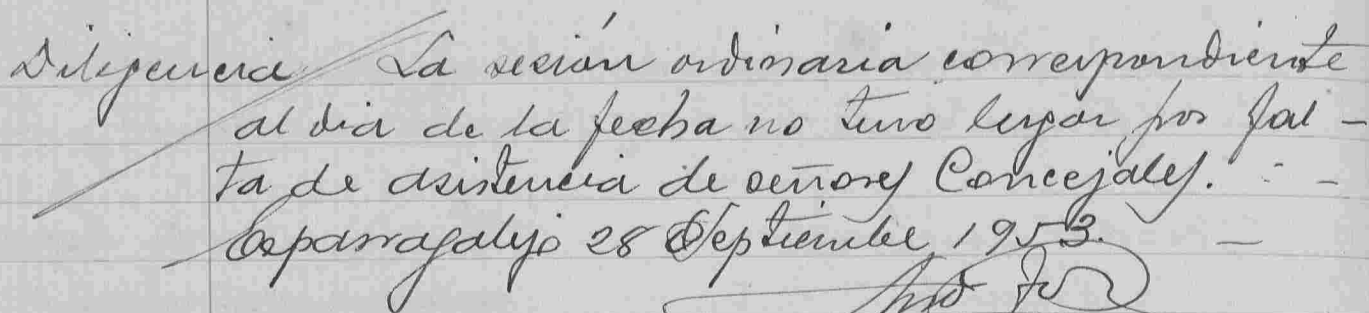 Diligencia La sesión ordinaria correspondiente
al dia de la fecha no tuvo lugar por fal-
ta de asistencia de señores Concejales. -
Esparragalejo 28 Septiembre 1953. -